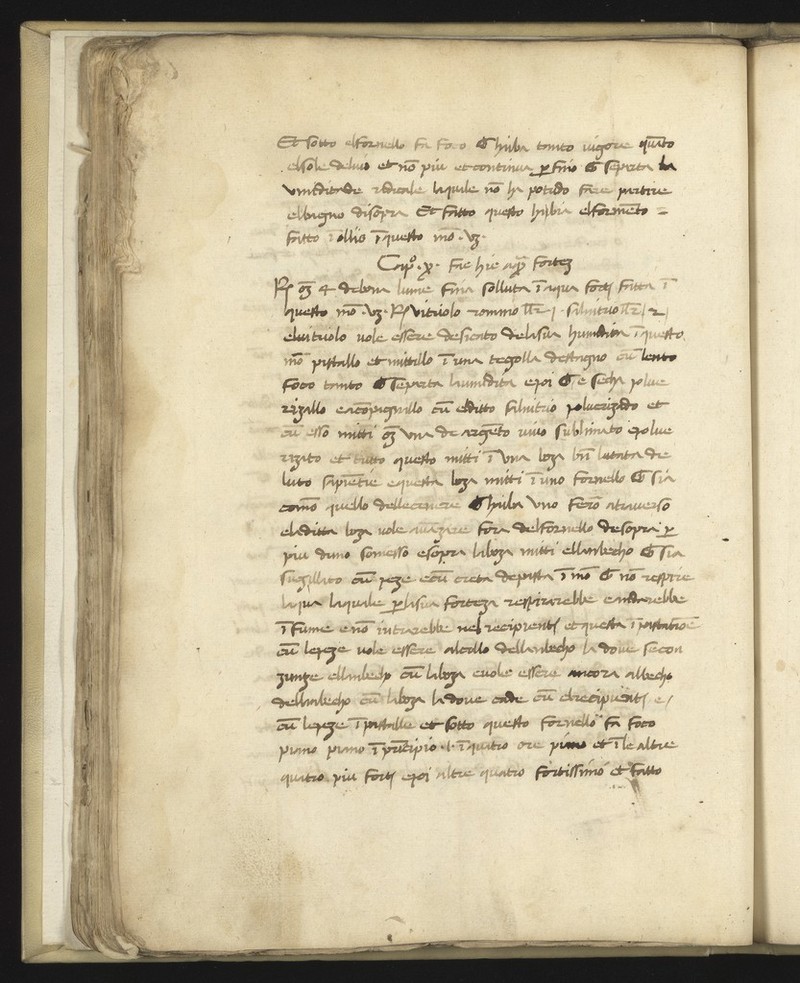 Et sotto el fornello fa foco che hiba tanto vigore quāto
el sole de luio et nō piu et continua ꝑ fino che se parta la
vmidita de radicale laquale nō ha potudo fare partire
el bagno disopra Et fatto questo hibia el formēto
fatto ī ollio ī questo mō .vꝫ.
Capᵒ. x. fare hie aq̄ forteꝫ
Rᵉ oꝫ 4 de bona lume fina solluta ī aqua fortj fatta ī
questo mō .vꝫ. Rᵉ vitriolo romano llr̄ j. salnitrio llr̄
el vitriolo vole essere desicato dela sua humidita ī questo
mō pistallo et mittillo ī una tegolla de stagno cū lento
foco tanto che se parta la umidita e poi che e secha polue
rizallo e acōpagnillo cū el ditto salnitrio poluerizado et
cū esso mitti oꝫ vna de argēto viuo sublimato e polue
rizato et tutto questo mitti ī vna boza bn̄ lutata de
luto sapiētie e questa boza mitti ī uno fornello che sia
como quello delle cenere che hiba vno fero atrauerso
e la ditta boza vole auāzare fora del fornello desopra ꝑ
piu duno somesso e sopra la boza mitti el lanbecho che sia
sugillato cū peze e cū creta de pasta ī mō che nō respire
laqua laquale ꝑ la sua forteza respirarebbe e andarebbe
ī fume e nō intrarebbe nel recipientj et questa ī pastatiōe
cū le peze vole essere alcollo dellanbecho la doue se con
zunze ellanbecho cū la boza e uole essere ancora al becho
dellanbecho cū la boza la doue cade cū el recipientj e
cū le peze ī pastalle et sotto questo fornello fa foco
piano piano ī prīcipio .l. ī quatro ore piano et ī le altre
quatro piu fortj e poi altre quatro fortissimo et fatto